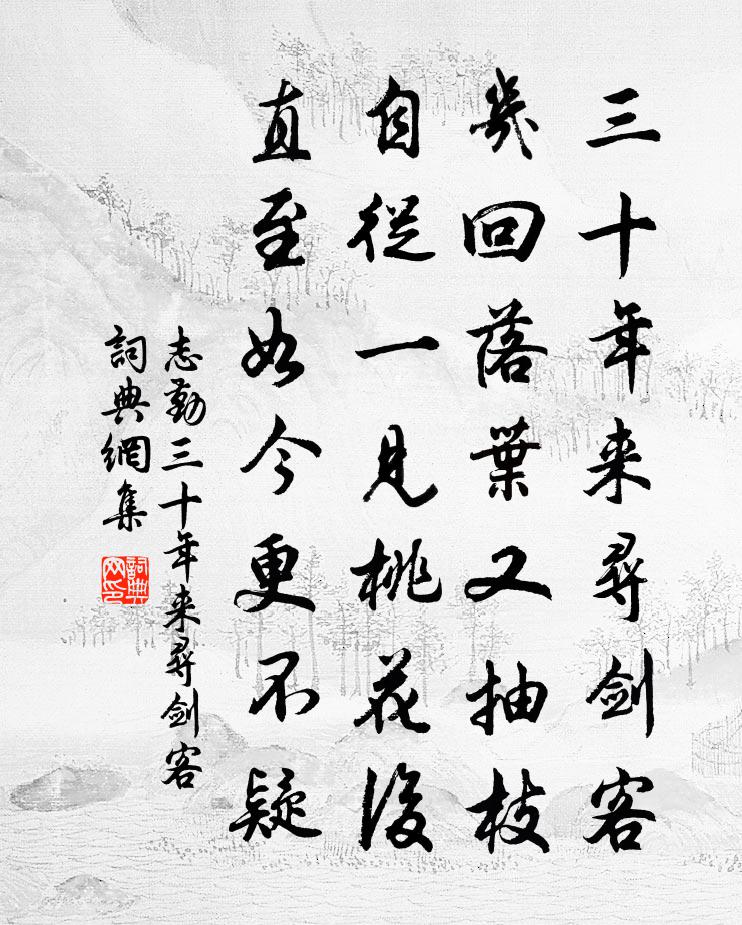 三十年来尋剑客
幾回落葉又抽枝
自從一見桃花後
直至如今更不疑
志勤三十年来尋剑客
詞典網集
詞典网印